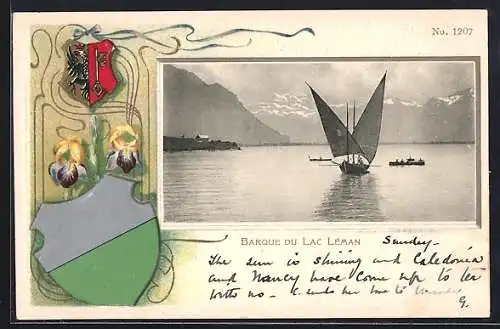 No. 1207
BARQUE DU LAC LÉMAN
Sunday-
The sun is shining and Caledonia
and Nancy have come up to tea
with us - C. sends her love to
G.